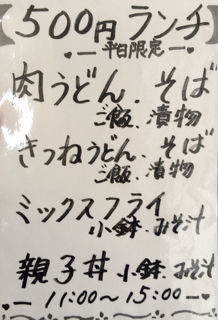 500円ランチ
平日限定
肉うどん.そば
ご飯.漬物
きつねうどん.そば
ご飯.漬物
ミックスフライ
小鉢.みそ汁
親子丼 小鉢.みそ汁
11:00〜15:00